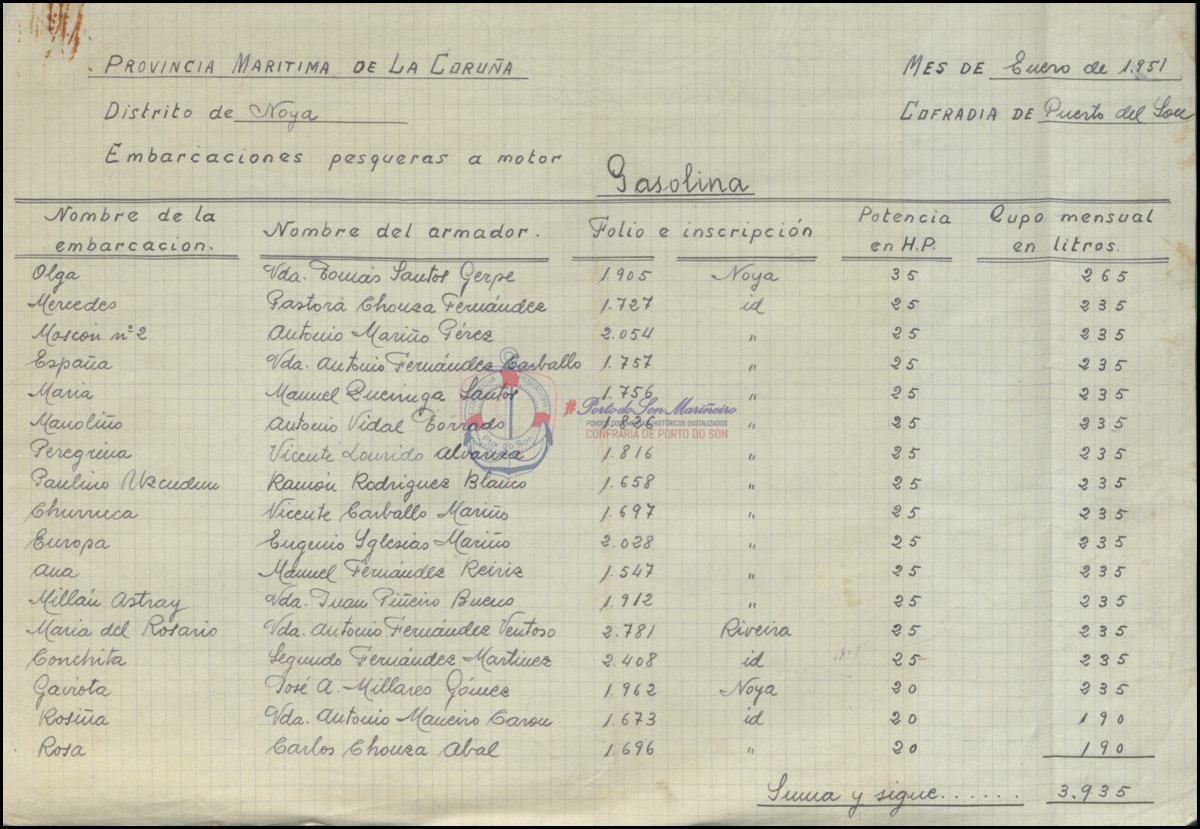 PROVINCIA MARITIMA DE LA CORUÑA
MES DE Enero de 1.951
Distrito de Noya
COFRADIA DE Puerto del Son
Embarcaciones pesqueras a motor
Gasolina
Nombre de la embarcacion. Nombre del armador. Folio e inscripción Potencia en H.P. Cupo mensual en litros.
Olga Vda. Tomás Santos Gerpe 1.905 Noya 35 265
Mercedes Pastora Chouza Fernández 1.727 id 25 235
Moscon nº 2 Antonio Mariño Pérez 2.054 " 25 235
España Vda. Antonio Fernández Carballo 1.757 " 25 235
Maria Manuel Santos 1.756 " 25 235
Manoliño Antonio Vidal Torrado 1.826 " 25 235
Peregrina Vicente Lourido 1.816 " 25 235
Paulino Uzcudun Ramón Rodriguez Blanco 1.658 " 25 235
Churruca Vicente Carballo Mariño 1.697 " 25 235
Europa Eugenio Iglesias Mariño 2.028 " 25 235
Ana Manuel Fernández Reiriz 1.547 " 25 235
Millán Astray Vda. Juan Piñeiro Bueno 1.912 " 25 235
Maria del Rosario Vda. Antonio Fernández Ventoso 2.781 Riveira 25 235
Conchita Segundo Fernández Martinez 2.408 id 25 235
Gaviota José A. Millares Gómez 1.962 Noya 20 235
Rosiña Vda. Antonio Maneiro Carou 1.673 id 20 190
Rosa Carlos Chouza Abal 1.696 " 20 190
Suma y sigue...... 3.935
#Porto do Son Mariñeiro
FONDOS DOCUMENTAIS HISTÓRICOS DIXITALIZADOS
CONFRARÍA DE PORTO DO SON
Pto. do Son